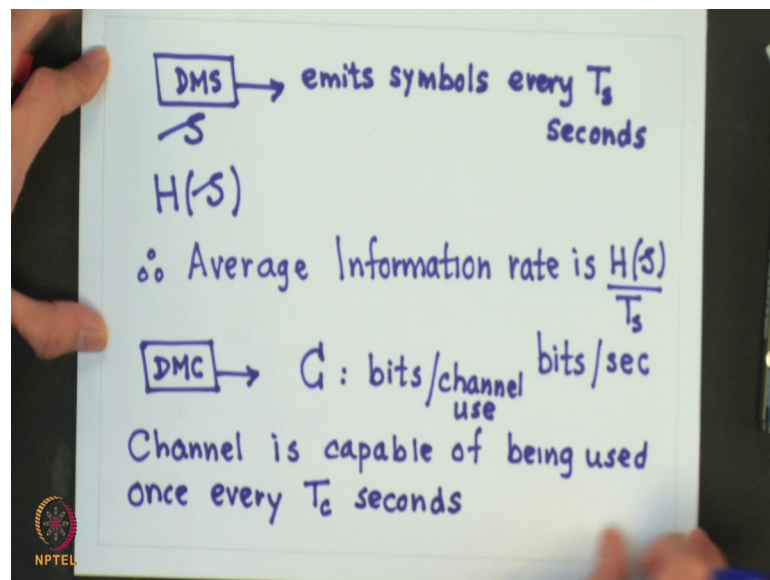 DMS → emits symbols every Ts
S seconds
H(S)
∴ Average Information rate is H(S)/Ts
bits/sec
DMC → C : bits/channel use
Channel is capable of being used
once every Tc seconds
NPTEL